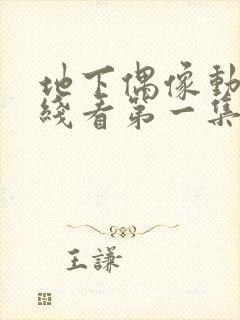 地下偶像動
綫看第一集
王謙